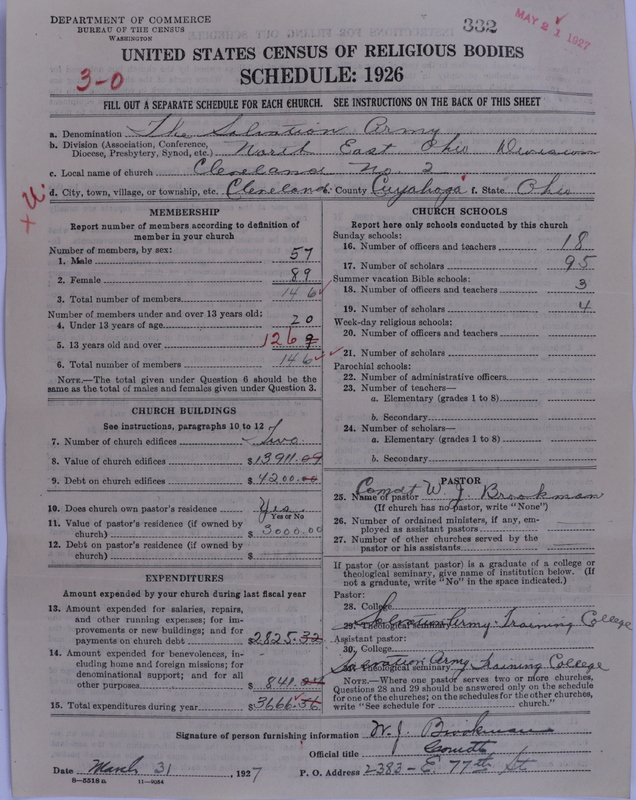 DEPARTMENT OF COMMERCE
BUREAU OF THE CENSUS
WASHINGTON
332
MAY 21 1927
UNITED STATES CENSUS OF RELIGIOUS BODIES
SCHEDULE: 1926
3-0
FILL OUT A SEPARATE SCHEDULE FOR EACH CHURCH. SEE INSTRUCTIONS ON THE BACK OF THIS SHEET
a. Denomination The Salvation Army
b. Division (Association, Conference, Diocese, Presbytery, Synod, etc.) North East Ohio Division
c. Local name of church Cleveland No. 2
d. City, town, village, or township, etc. Cleveland County Cuyahoga f. State Ohio
MEMBERSHIP
Report number of members according to definition of
member in your church
Number of members, by sex:
1. Male 57
2. Female 89
3. Total number of members 146
Number of members under and over 13 years old:
4. Under 13 years of age 20
5. 13 years old and over 126
6. Total number of members 146
NOTE.—The total given under Question 6 should be the
same as the total of males and females given under Question 3.
CHURCH BUILDINGS
See instructions, paragraphs 10 to 12
7. Number of church edifices Two
8. Value of church edifices $13911.09
9. Debt on church edifices $4200.00
10. Does church own pastor's residence? Yes
Yes or No
11. Value of pastor's residence (if owned by
church) $3000.00
12. Debt on pastor's residence (if owned by
church) $
EXPENDITURES
Amount expended by your church during last fiscal year
13. Amount expended for salaries, repairs,
and other running expenses; for im-
provements or new buildings; and for
payments on church debt $2825.32
14. Amount expended for benevolences, in-
cluding home and foreign missions; for
denominational support; and for all
other purposes $841.04
15. Total expenditures during year $3666.36
CHURCH SCHOOLS
Report here only schools conducted by this church
Sunday schools:
16. Number of officers and teachers 18
17. Number of scholars 95
Summer vacation Bible schools:
18. Number of officers and teachers 3
19. Number of scholars 4
Week-day religious schools:
20. Number of officers and teachers
21. Number of scholars
Parochial schools:
22. Number of administrative officers
23. Number of teachers—
a. Elementary (grades 1 to 8)
b. Secondary
24. Number of scholars—
a. Elementary (grades 1 to 8)
b. Secondary
PASTOR
25. Name of pastor Comdt W. J. Brookman
(If church has no pastor, write "None")
26. Number of ordained ministers, if any, em-
ployed as assistant pastors
27. Number of other churches served by the
pastor or his assistants
If pastor (or assistant pastor) is a graduate of a college or
theological seminary, give name of institution below. (If
not a graduate, write "No" in the space indicated.)
Pastor:
28. College
29. Theological seminary Salvation Army Training College
Assistant pastor:
30. College
Theological seminary Salvation Army Training College
NOTE.—Where one pastor serves two or more churches,
Questions 28 and 29 should be answered only on the schedule
for one of the churches; on the schedules for the other churches,
write "See schedule for church."
Signature of person furnishing information W. J. Brookman
Official title Comdt
Date March 31, 1927 P. O. Address 2383 - E. 77th St
8—5518a 11—9054